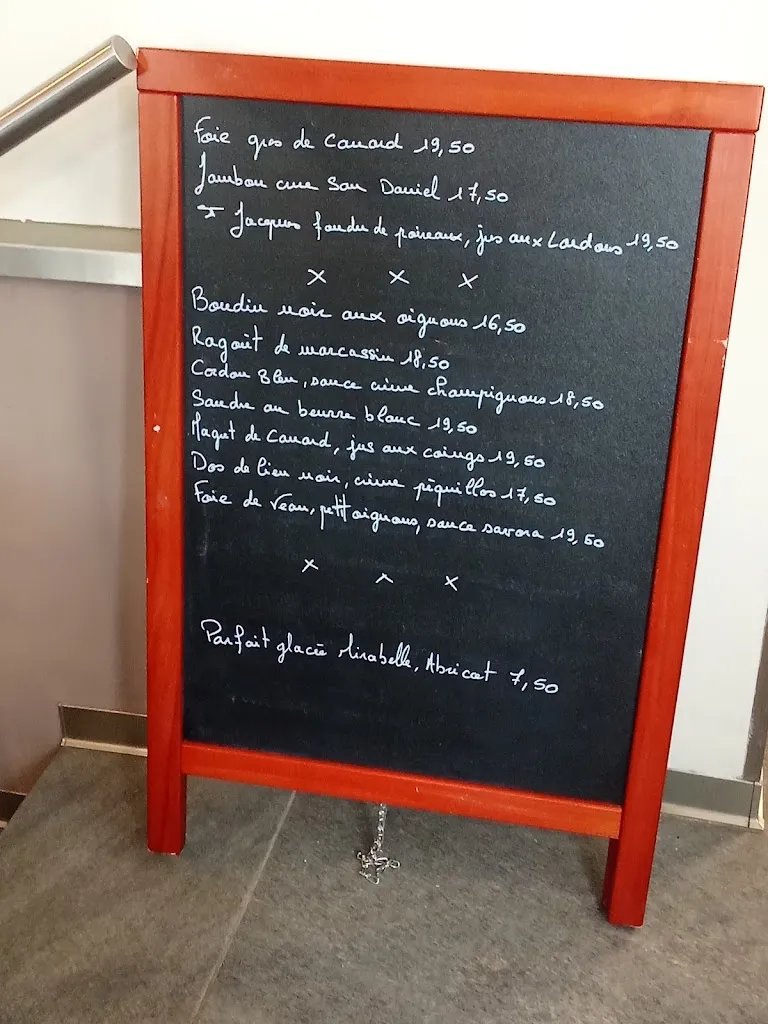 Foie gras de Canard 19,50
Jambon cru San Daniel 17,50
St Jacques fondu de poireaux, jus aux Lardons 19,50
x x x
Boudin noir aux oignons 16,50
Ragout de marcassin 18,50
Cordon Bleu, sauce crème champignons 18,50
Sandre au beurre blanc 19,50
Magret de Canard, jus aux coings 19,50
Dos de lieu noir, crème péquillos 17,50
Foie de Veau, petit oignons, sauce savora 19,50
x x x
Parfait glacée Mirabelle, Abricot 7,50